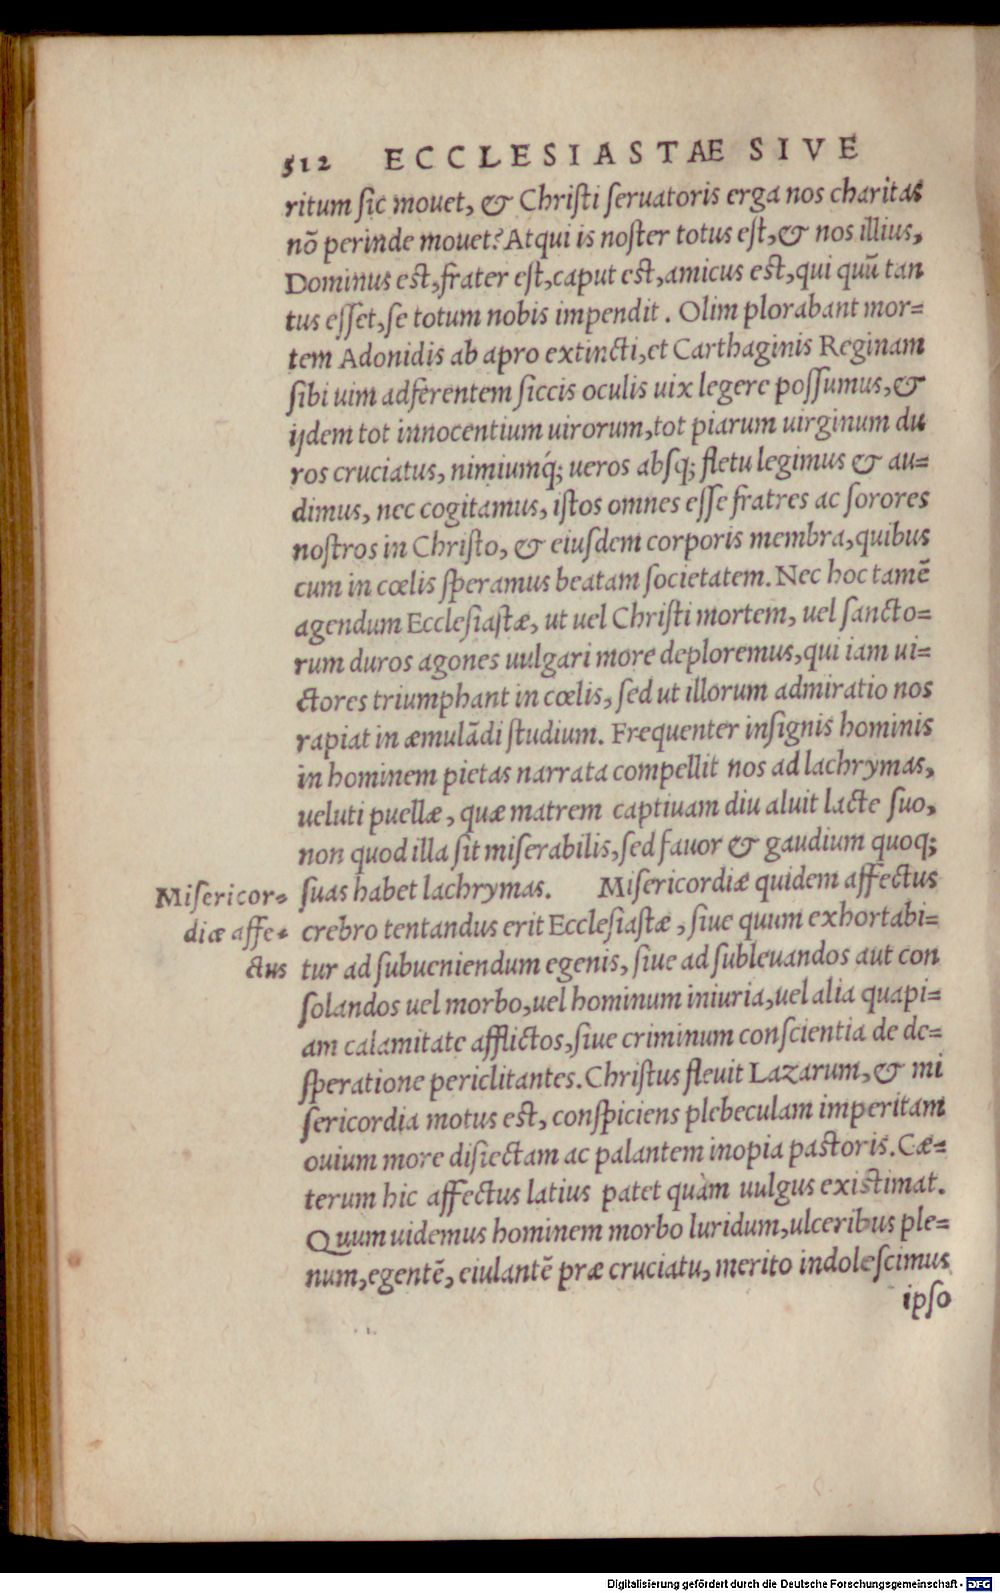 512 ECCLESIASTAE SIVE
ritum sic mouet, & Christi seruatoris erga nos charitas
nō perinde mouet? Atqui is noster totus est, & nos illius,
Dominus est, frater est, caput est, amicus est, qui quū tan
tus esset, se totum nobis impendit. Olim plorabant mor=
tem Adonidis ab apro extincti, et Carthaginis Reginam
sibi uim adferentem siccis oculis uix legere possumus, &
ijdem tot innocentium uirorum, tot piarum uirginum du
ros cruciatus, nimiumq́; ueros absq; fletu legimus & au=
dimus, nec cogitamus, istos omnes esse fratres ac sorores
nostros in Christo, & eiusdem corporis membra, quibus
cum in cœlis speramus beatam societatem. Nec hoc tamē
agendum Ecclesiastæ, ut uel Christi mortem, uel sancto=
rum duros agones uulgari more deploremus, qui iam ui=
ctores triumphant in cœlis, sed ut illorum admiratio nos
rapiat in æmulādi studium. Frequenter insignis hominis
in hominem pietas narrata compellit nos ad lachrymas,
ueluti puellæ, quæ matrem captiuam diu aluit lacte suo,
non quod illa sit miserabilis, sed fauor & gaudium quoq;
suas habet lachrymas. Misericordiæ quidem affectus
Misericor=
diæ affe=
ctus
crebro tentandus erit Ecclesiastæ, siue quum exhortabi=
tur ad subueniendum egenis, siue ad subleuandos aut con
solandos uel morbo, uel hominum iniuria, uel alia quapi=
am calamitate afflictos, siue criminum conscientia de de=
speratione periclitantes. Christus fleuit Lazarum, & mi
sericordia motus est, conspiciens plebeculam imperitam
ouium more disiectam ac palantem inopia pastoris. Cæ=
terum hic affectus latius patet quàm uulgus existimat.
Quum uidemus hominem morbo luridum, ulceribus ple=
num, egentē, eiulantē præ cruciatu, merito indolescimus
ipso
Digitalisierung gefördert durch die Deutsche Forschungsgemeinschaft - DFG